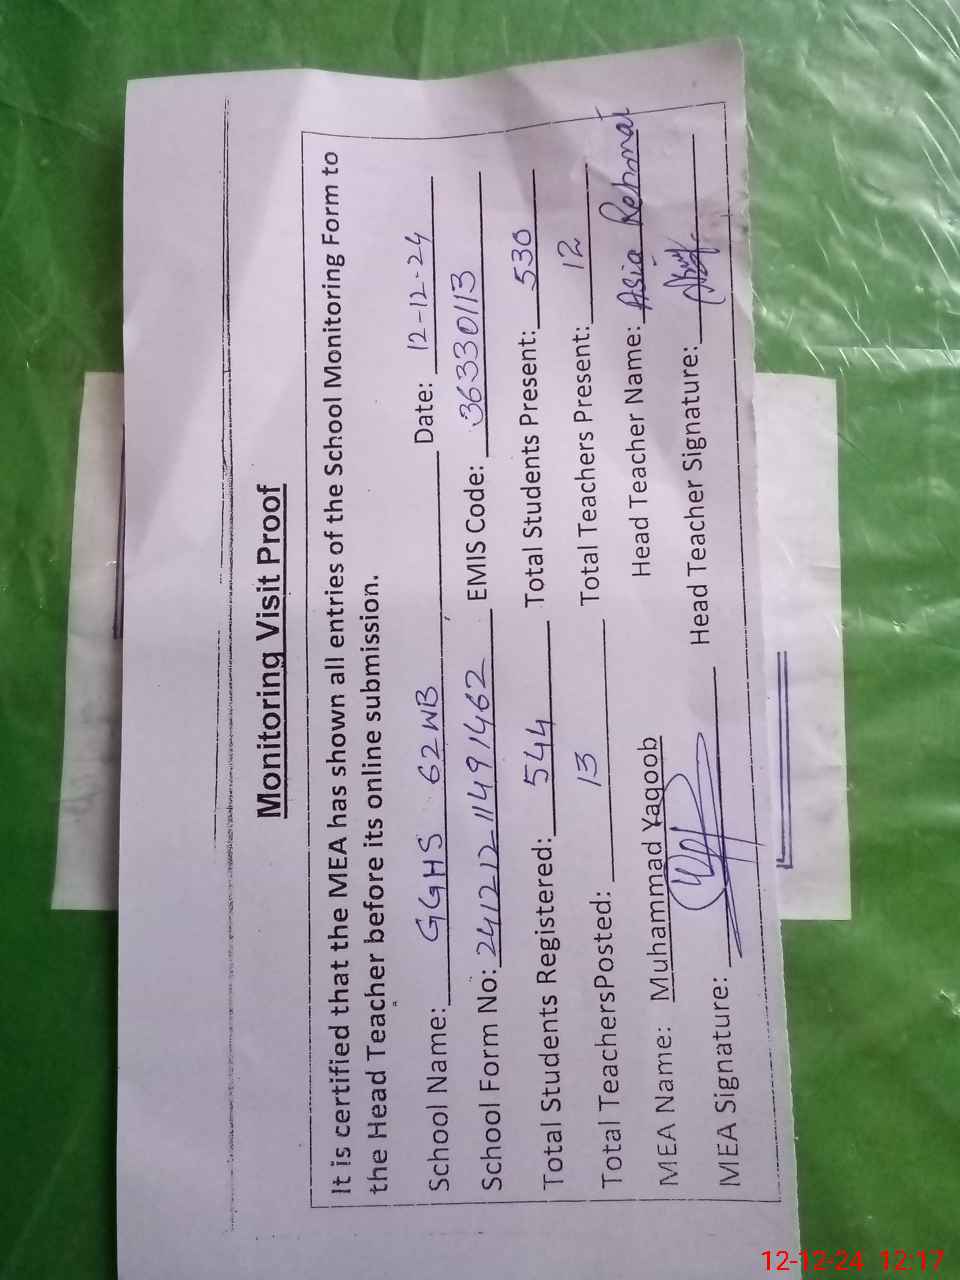 Monitoring Visit Proof
It is certified that the MEA has shown all entries of the School Monitoring Form to
the Head Teacher before its online submission.
School Name: GGHS 62 WB Date: 12-12-24
School Form No: 24121211491462 EMIS Code: 36330113
Total Students Registered: 544 Total Students Present: 530
Total TeachersPosted: 13 Total Teachers Present: 12
MEA Name: Muhammad Yaqoob Head Teacher Name: Asia Rehmat
MEA Signature: Head Teacher Signature:
12-12-24 12:17